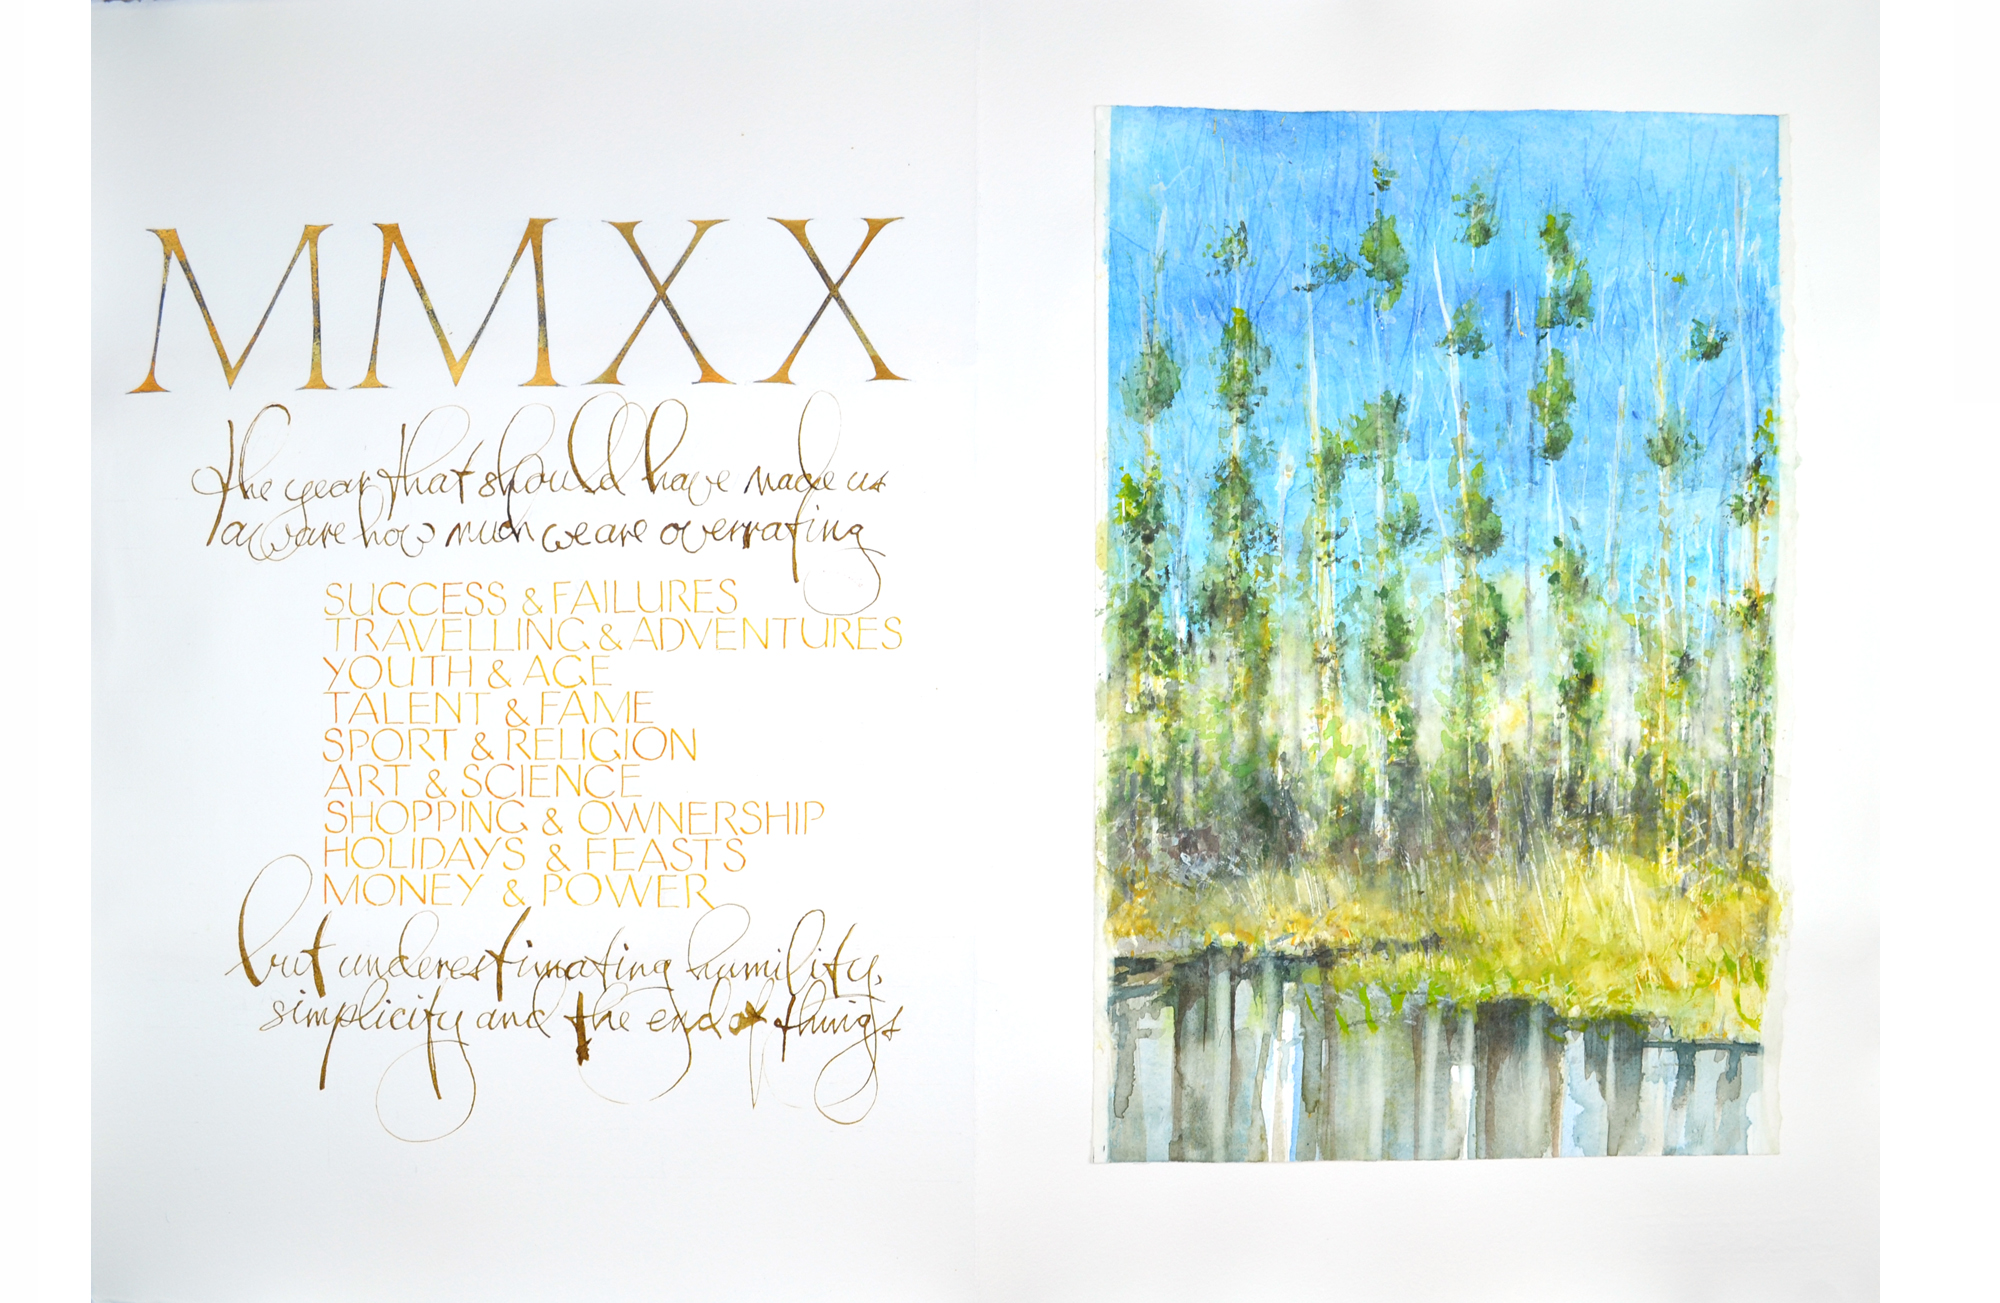 MMXX
the year that should have made us
aware how much we are overrating
SUCCESS & FAILURES
TRAVELLING & ADVENTURES
YOUTH & AGE
TALENT & FAME
SPORT & RELIGION
ART & SCIENCE
SHOPPING & OWNERSHIP
HOLIDAYS & FEASTS
MONEY & POWER
but underestimating humility,
simplicity and the end of things